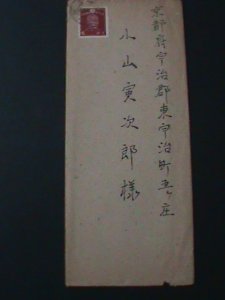 京都府宇治郡東宇治町五ヶ庄
小山寅次郎様